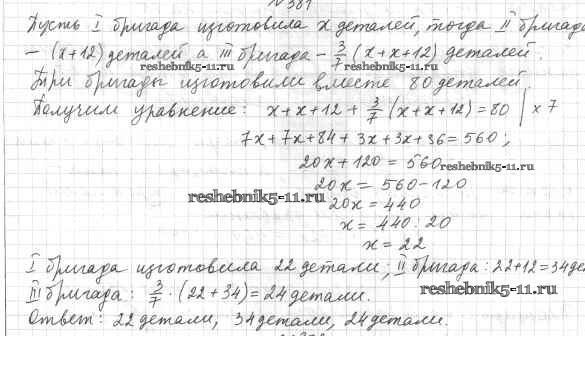 № 381
Пусть I бригада изготовила x деталей, тогда II бригада
– (x+12) деталей а III бригада – 3/7 (x+x+12) деталей.
reshebnik5-11.ru reshebnik5-11.ru
Три бригады изготовили вместе 80 деталей
Получим уравнение: x+x+12+ 3/7 (x+x+12)=80 | x 7
7x+7x+84+3x+3x+36=560;
20x+120=560
reshebnik5-11.ru
20x=560-120
reshebnik5-11.ru
20x=440
x=440:20
x=22
I бригада изготовила 22 детали; II бригада: 22+12=34дет
III бригада: 3/7 · (22+34)=24детали.
reshebnik5-11.ru
Ответ: 22детали, 34детали, 24детали.